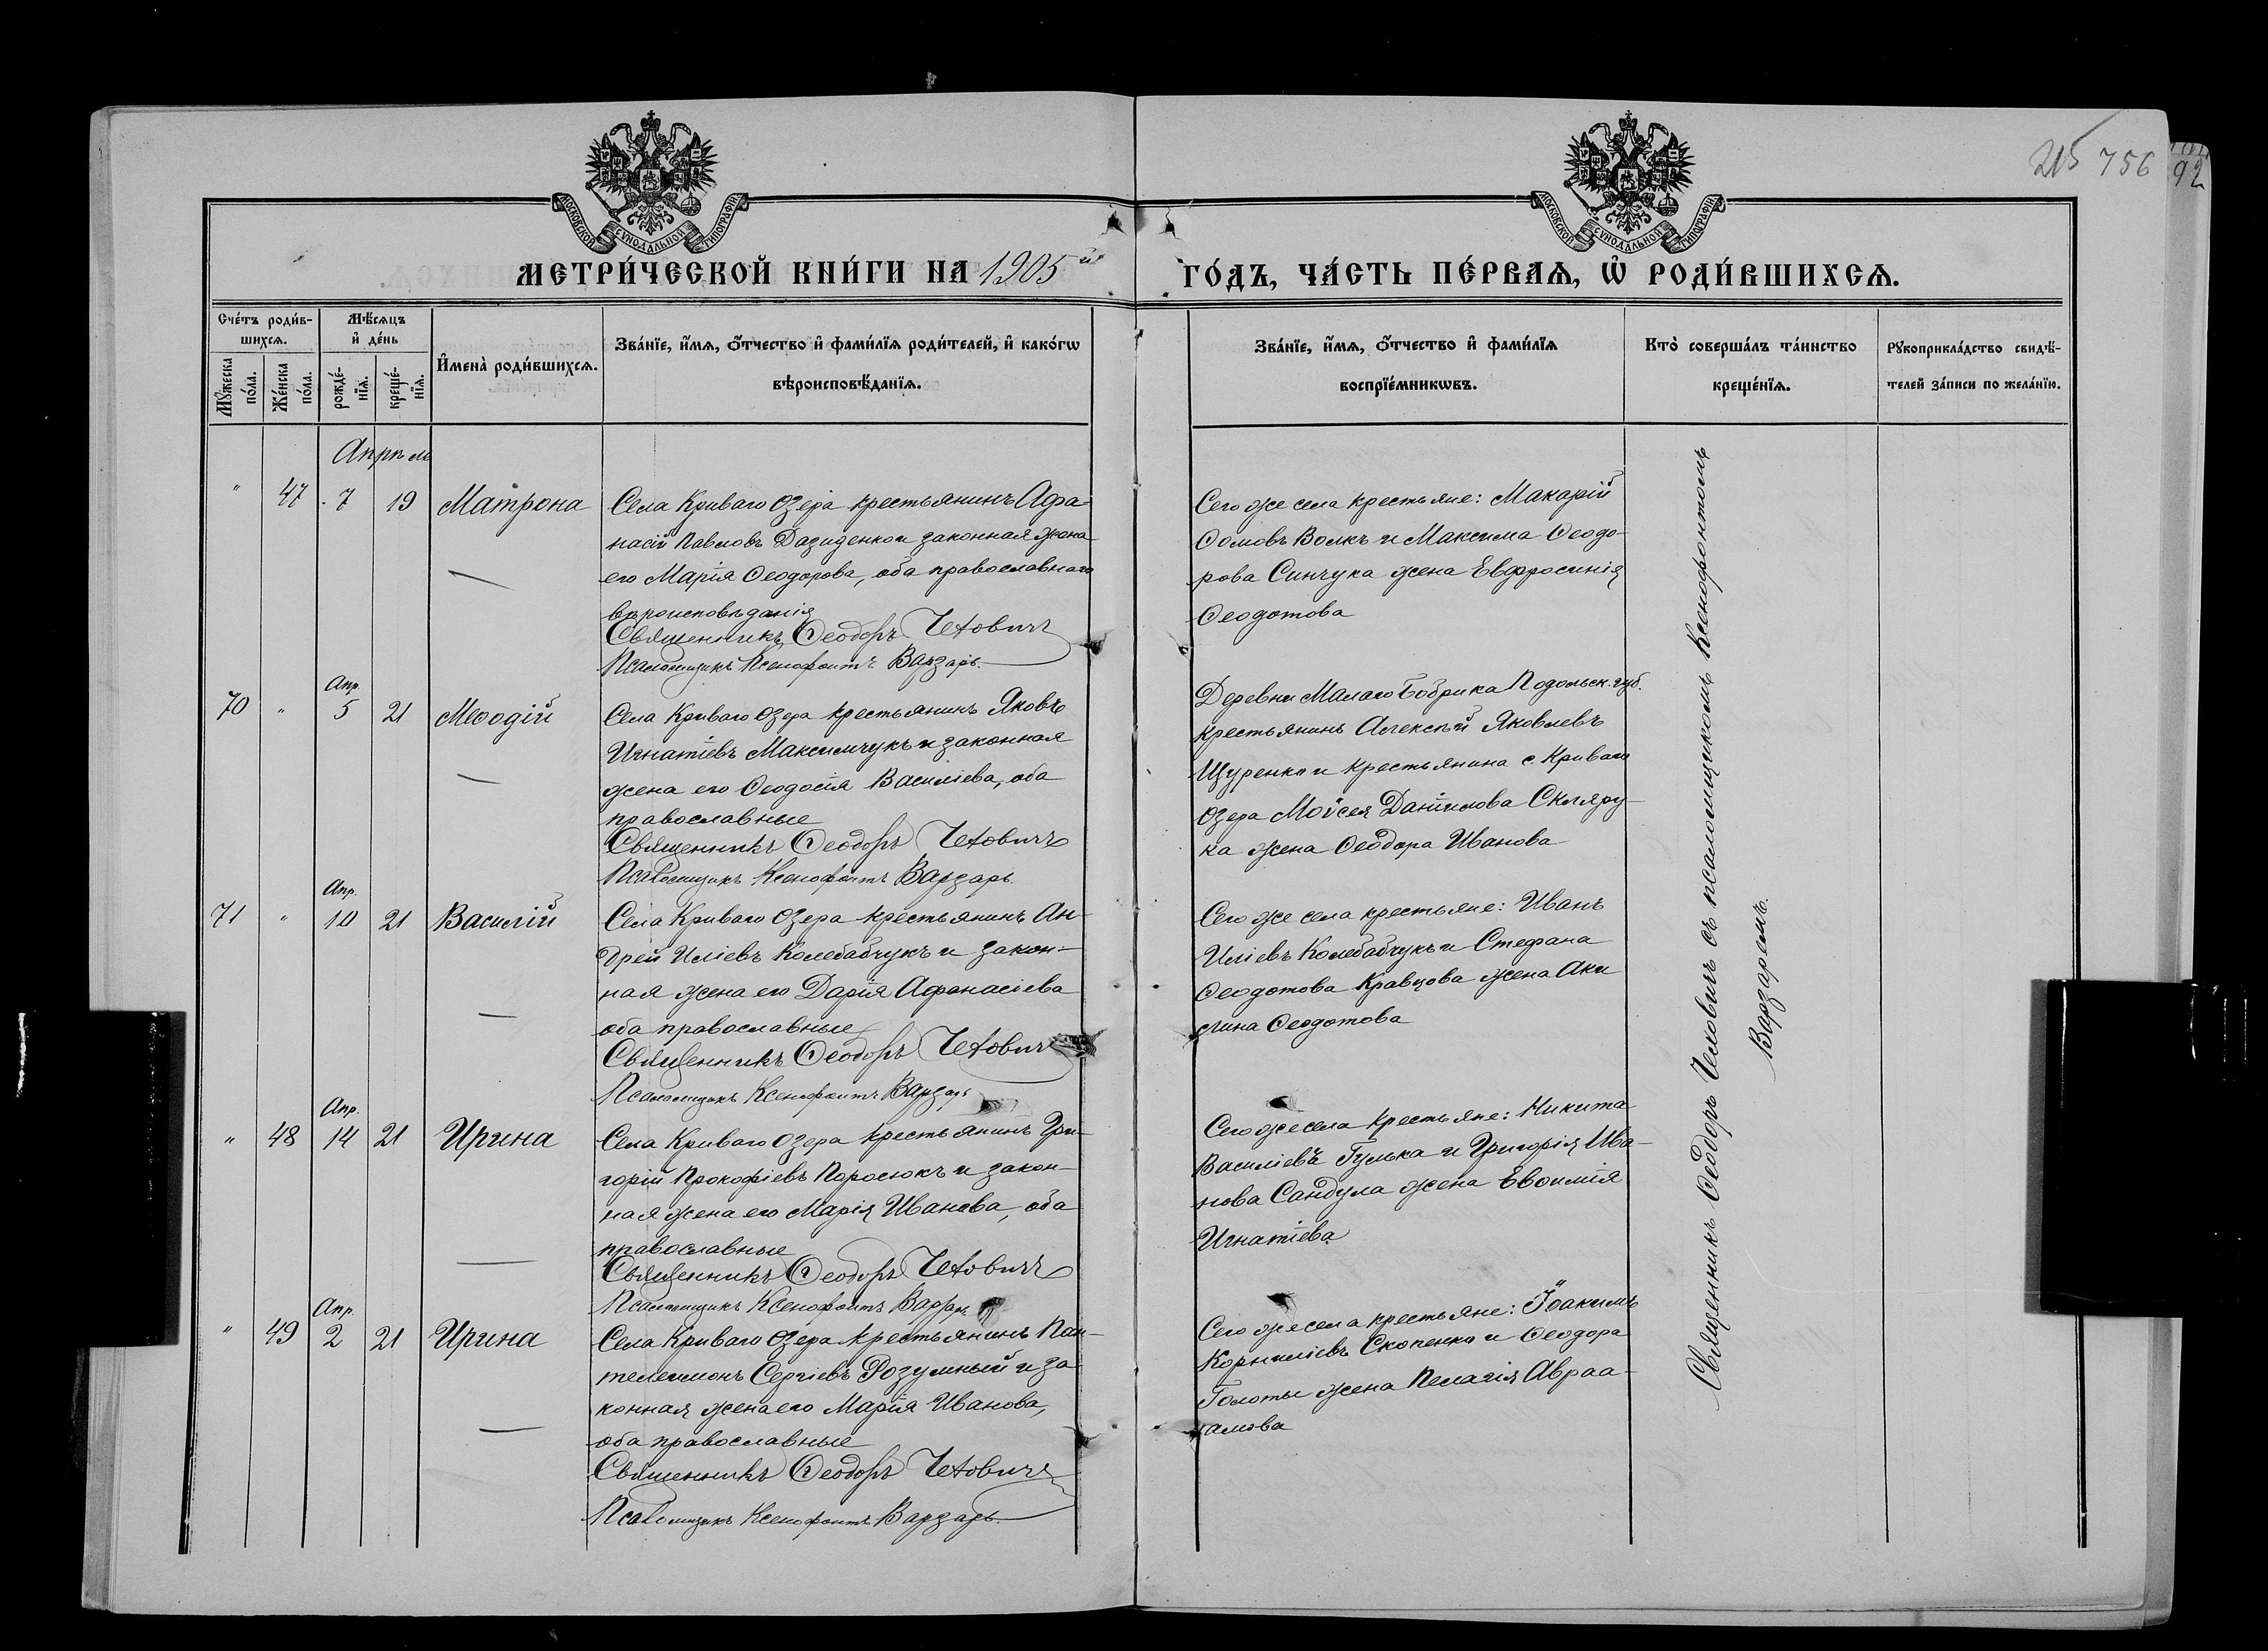 215 756 92
МОСКОВСКОЙ СУНОДАЛЬНОЙ ТИПОГРАФІИ
МОСКОВСКОЙ СУНОДАЛЬНОЙ ТИПОГРАФІИ
МЕТРИ́ЧЕСКОЙ КНИ́ГИ НА 1905й ГО́ДЪ, ЧА́СТЬ ПЕ́РВАѦ, Ѽ РОДИ́ВШИХСѦ.
Сче́тъ роди́в-
шихсѧ.
Мꙋжеска по́ла.
Же́нска по́ла.
Мѣ́сѧцъ
и҆ де́нь
рожде́-
нїѧ.
креще́-
нїѧ.
И҆мена̀ роди́вшихсѧ.
Зва́нїе, и҆́мѧ, ѻ҆́тчество и҆ фами́лїѧ роди́телей, и҆ како́гѡ
вѣроисповѣ́данїѧ.
Зва́нїе, и҆́мѧ, ѻ҆́тчество и҆ фами́лїѧ
воспрїе́мникѡвъ.
Кто̀ соверша́лъ та́инство
креще́нїѧ.
Рꙋкоприкла́дство свидѣ́-
телей за́писи по жела́нїю.
Апрѣль
" 47 7 19 Матрона
Села Криваго Озера крестьянинъ Афа-
насій Павловъ Дазиденко и законная жена
его Марія Ѳеодорова, оба православнаго
вѣроисповѣданія
Священникъ Ѳеодоръ Чехович
Псаломщикъ Ксенофонтъ Варзарь.
Сего же села крестьяне: Макарій
Ѳомовъ Волкъ и Максима Ѳеодо-
рова Синчука жена Евфросинія
Ѳеодотова
Апр.
70 " 5 21 Меѳодій
Села Криваго Озера крестьянинъ Яковъ
Игнатіевъ Максимчукъ и законная
жена его Ѳеодосія Василіева, оба
православные
Священникъ Ѳеодоръ Чеховичъ
Псаломщикъ Ксенофонтъ Варзарь.
Деревни Малаго Бобрика Подольск. губ.
крестьянинъ Алексѣй Яковлевъ
Щуренко и крестьянина с. Криваго
Озера Моѵсея Даніилова Скляру-
ка жена Ѳеодора Иванова
Апр.
71 " 10 21 Василій
Села Криваго Озера крестьянинъ Ан-
дрей Иліевъ Колебабчукъ и закон-
ная жена его Дарія Афанасіева
оба православные
Священникъ Ѳеодоръ Чехович
Псаломщикъ Ксенофонтъ Варзарь
Сего же села крестьяне: Иванъ
Иліевъ Колебабчукъ и Стефана
Ѳеодотова Кравцова жена Аки
лина Ѳеодотова
Апр.
" 48 14 21 Ирина
Села Криваго Озера крестьянинъ Гри-
горій Прокофіевъ Поросюкъ и закон-
ная жена его Марія Иванова, оба
православные
Священникъ Ѳеодоръ Чехович
Псаломщикъ Ксенофонтъ Варзарь
Сего же села крестьяне: Никита
Василіевъ Гулька и Григорія Ива-
нова Сандула жена Евѳимія
Игнатіева
Апр.
" 49 2 21 Ирина
Села Криваго Озера крестьянинъ Пан-
телеимонъ Сергіевъ Розумный и за
конная жена его Марія Иванова,
оба православные
Священникъ Ѳеодоръ Чехович
Псаломщикъ Ксенофонтъ Варзарь.
Сего же села крестьяне: Іоакимъ
Корниліевъ Скопенко и Ѳеодора
Голоты жена Пелагія Авраа-
амова
Священникъ Ѳеодоръ Чеховичъ съ псаломщикомъ Ксенофонтомъ
Варзаремъ.